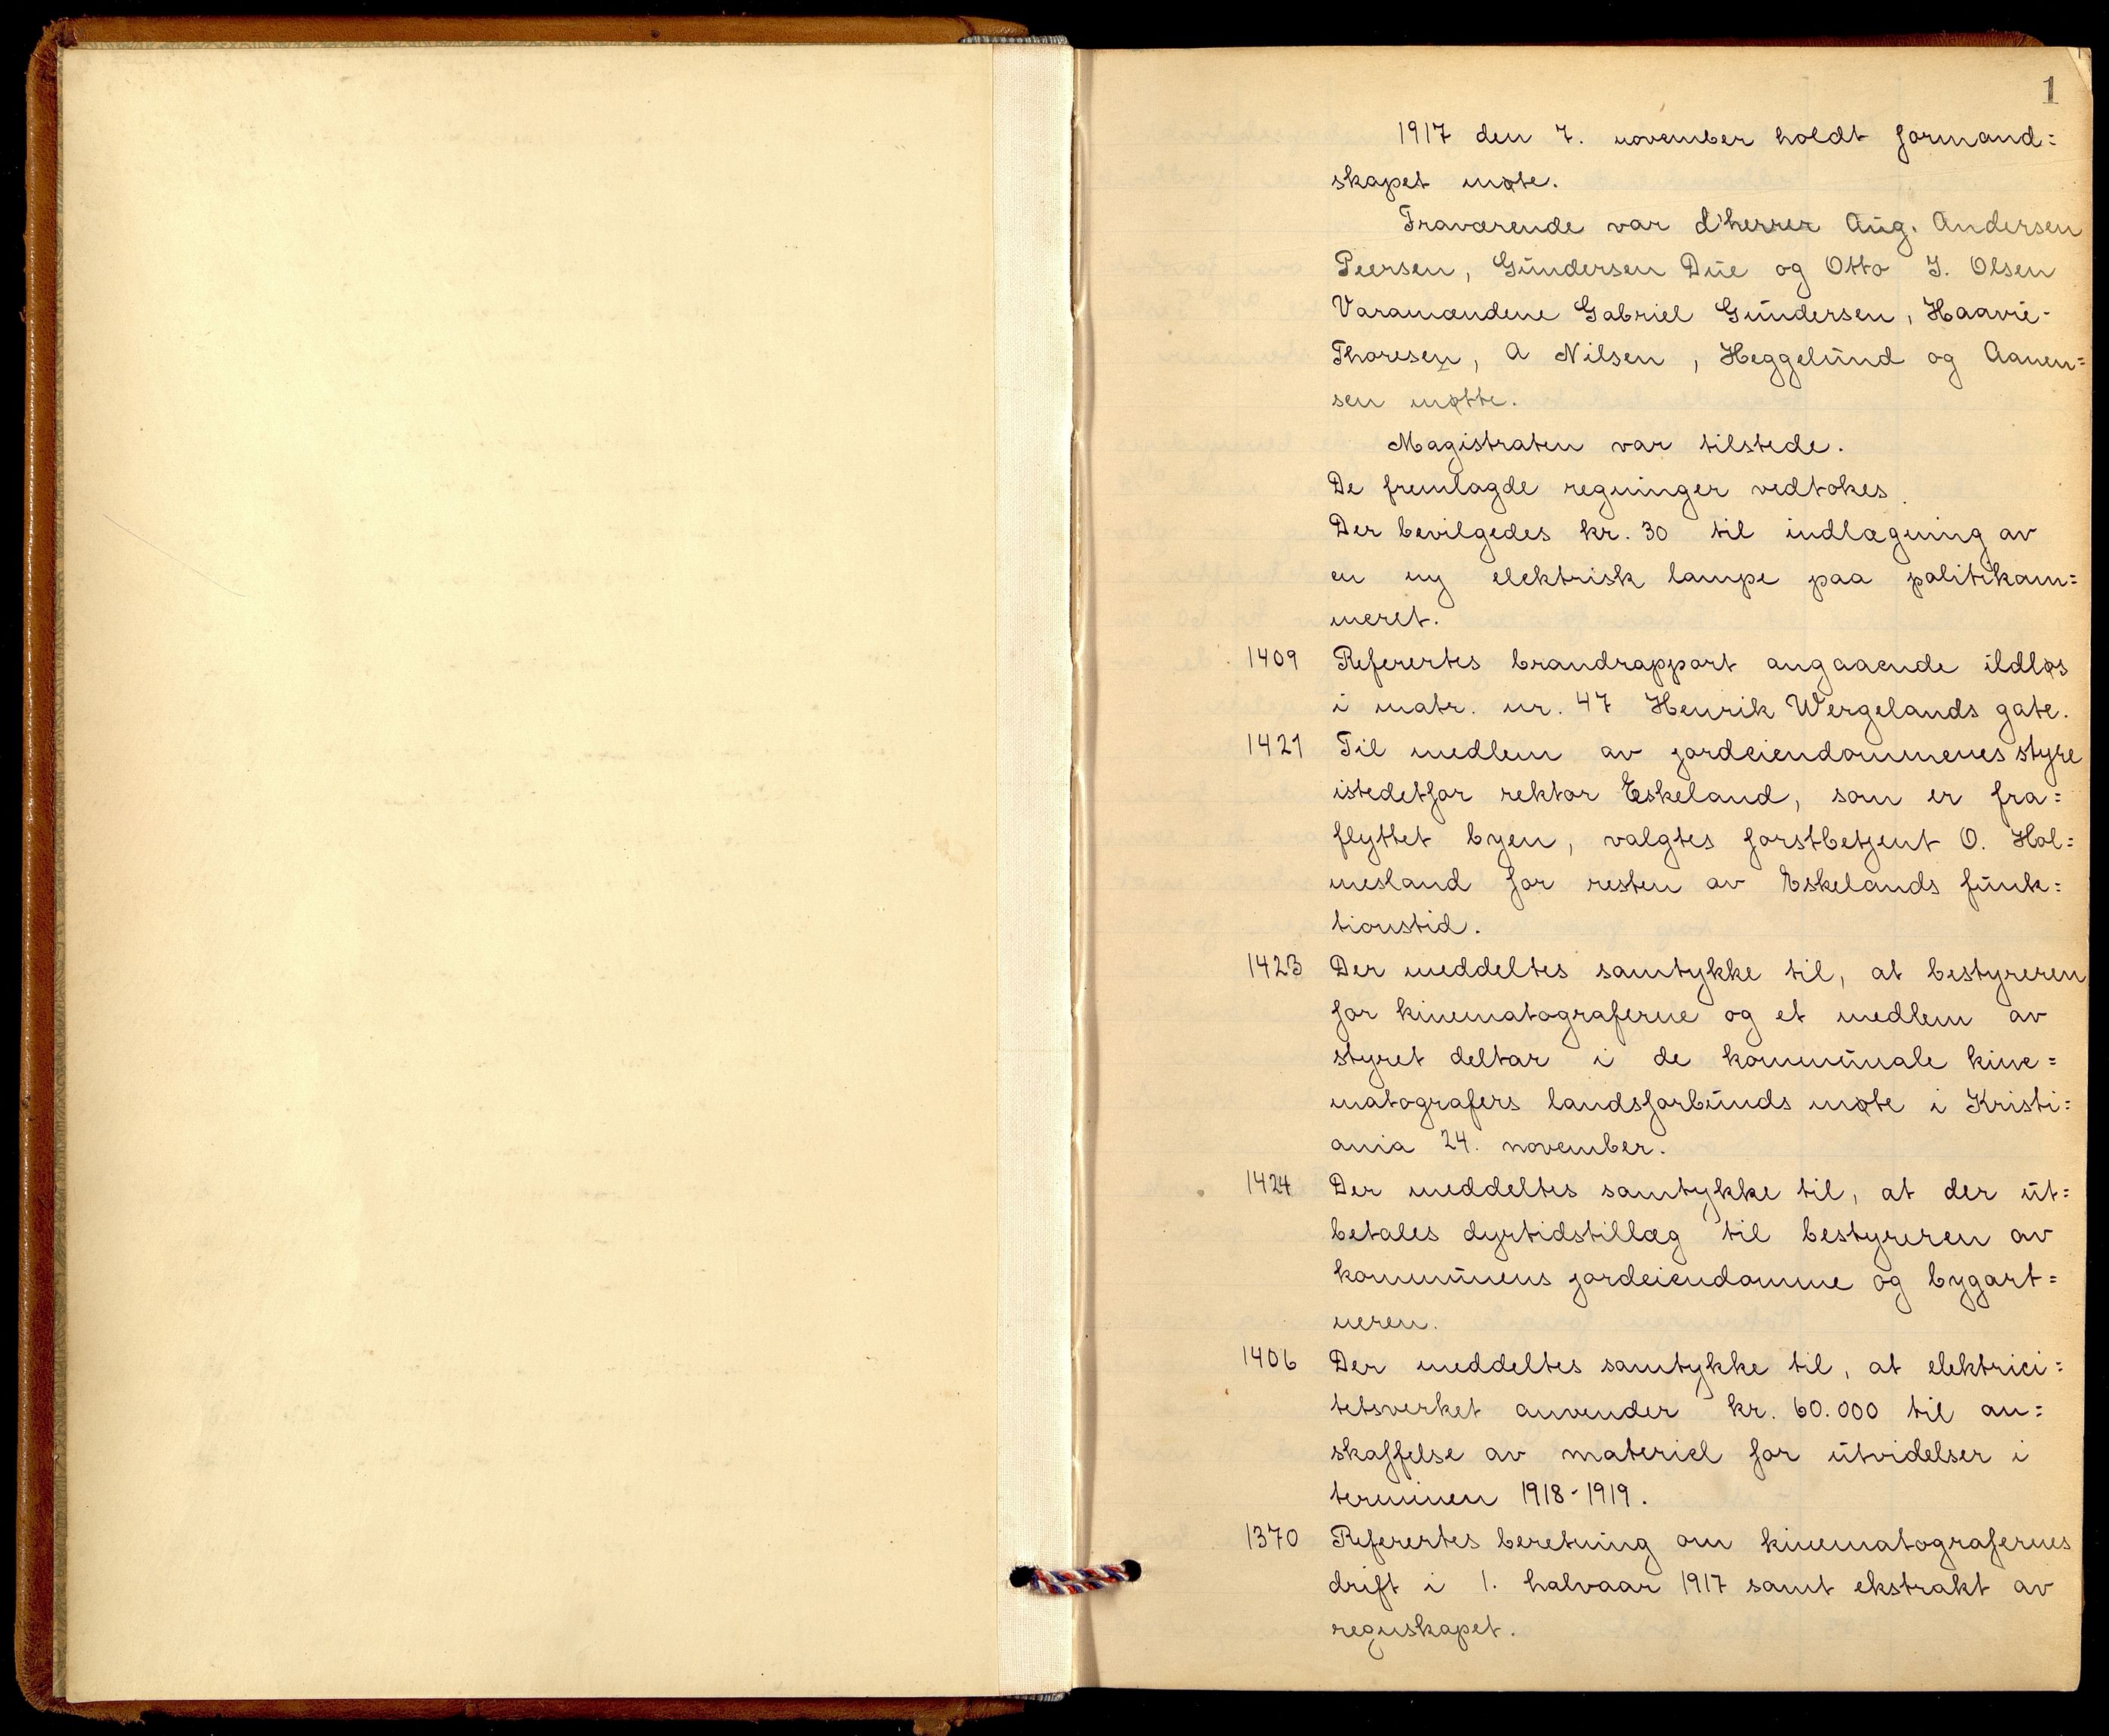 1
1917 den 7. november holdt formand=
skapet møte.
Fraværende var d'herrer Aug. Andersen
Peersen, Gundersen Due og Otto J. Olsen
Varamændene Gabriel Gundersen, Haavie-
Thoresen, A Nilsen, Heggelund og Aanen=
sen møtte.
Magistraten var tilstede.
De fremlagde regninger vedtokes.
Der bevilgedes kr. 30 til indlægning av
en ny elektrisk lampe paa politikam=
meret.
1409 Referertes brandrapport angaaende ildløs
i matr. nr. 47 Henrik Wergelands gate.
1421 Til medlem av jordeiendommenes styre
istedetfor rektor Eskeland, som er fra=
flyttet byen, valgtes forstbetjent O. Hol=
mesland for resten av Eskelands funk=
tionstid.
1423 Der meddeltes samtykke til, at bestyreren
for kinematograferne og et medlem av
styret deltar i de kommunale kine=
matografers landsforbunds møte i Kristi=
ania 24. november.
1424 Der meddeltes samtykke til, at der ut=
betales dyrtidstillæg til bestyreren av
kommunens jordeiendomme og bygart=
neren.
1406 Der meddeltes samtykke til, at elektrici=
tetsverket anvender kr. 60.000 til an=
skaffelse av materiel for utvidelser i
terminen 1918-1919.
1370 Referertes beretning om kinematografernes
drift i 1. halvaar 1917 samt ekstrakt av
regnskapet.